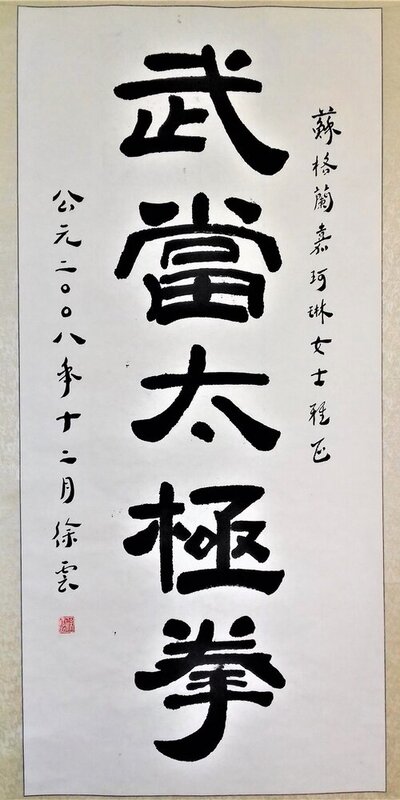 蘇格蘭嘉珂琳女士雅正
武當太極拳
公元二〇〇八年十二月徐雲